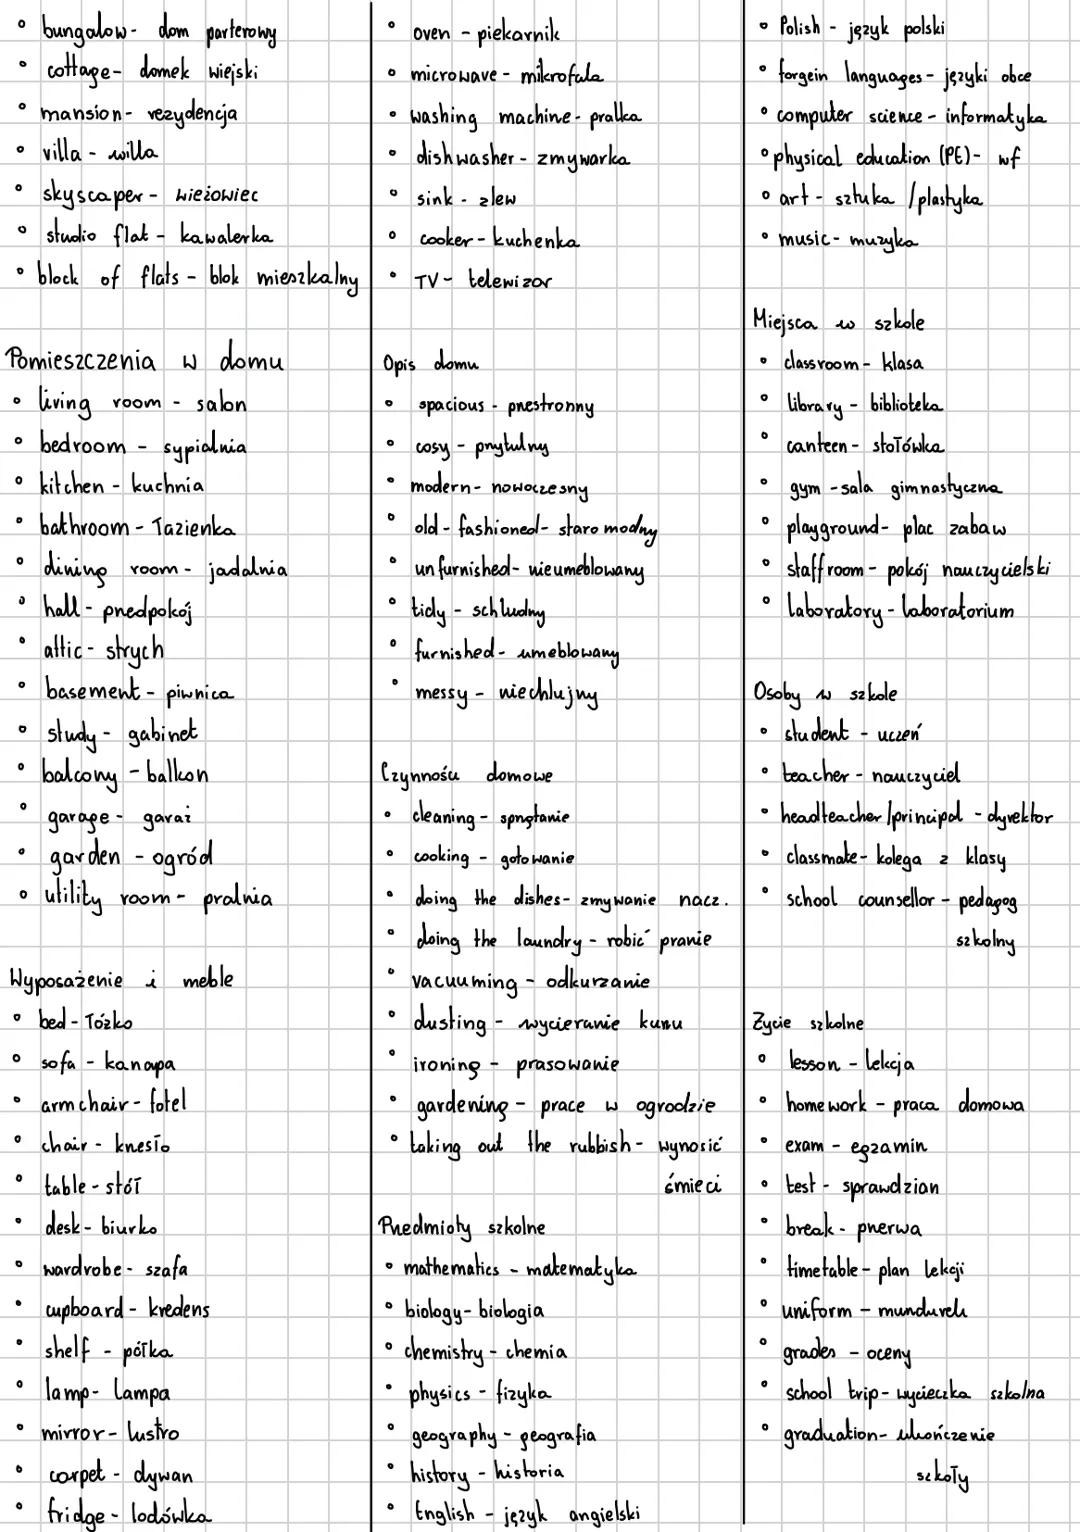 ° bungalow - dom parterowy
° cottage - domek wiejski
° mansion - rezydencja
° villa - willa
° skyscaper - wieżowiec
° studio flat - kawalerka
° block of flats - blok mieszkalny
Pomieszczenia w domu
° living room - salon
° bedroom - sypialnia
° kitchen - kuchnia
° bathroom - łazienka
° dining room - jadalnia
° hall - przedpokój
° attic - strych
° basement - piwnica
° study - gabinet
° balcony - balkon
° garage - garaż
° garden - ogród
° utility room - pralnia
Wyposażenie i meble
° bed - łóżko
° sofa - kanapa
° armchair - fotel
° chair - krzesło
° table - stół
° desk - biurko
° wardrobe - szafa
° cupboard - kredens
° shelf - półka
° lamp - lampa
° mirror - lustro
° carpet - dywan
° fridge - lodówka
° oven - piekarnik
° microwave - mikrofala
° washing machine - pralka
° dishwasher - zmywarka
° sink - zlew
° cooker - kuchenka
° TV - telewizor
Opis domu
° spacious - przestronny
° cosy - przytulny
° modern - nowoczesny
° old-fashioned - staromodny
° unfurnished - nieumeblowany
° tidy - schludny
° furnished - umeblowany
° messy - niechlujny
Czynności domowe
° cleaning - sprzątanie
° cooking - gotowanie
° doing the dishes - zmywanie nacz.
° doing the laundry - robić pranie
° vacuuming - odkurzanie
° dusting - wycieranie kurzu
° ironing - prasowanie
° gardening - prace w ogrodzie
° taking out the rubbish - wynosić
śmieci
Przedmioty szkolne
° mathematics - matematyka
° biology - biologia
° chemistry - chemia
° physics - fizyka
° geography - geografia
° history - historia
° English - język angielski
° Polish - język polski
° forgein languages - języki obce
° computer science - informatyka
° physical education (PE) - wf
° art - sztuka / plastyka
° music - muzyka
Miejsca w szkole
° classroom - klasa
° library - biblioteka
° canteen - stołówka
° gym - sala gimnastyczna
° playground - plac zabaw
° staffroom - pokój nauczycielski
° laboratory - laboratorium
Osoby w szkole
° student - uczeń
° teacher - nauczyciel
° headteacher/principal - dyrektor
° classmate - kolega z klasy
° school counsellor - pedagog
szkolny
Życie szkolne
° lesson - lekcja
° homework - praca domowa
° exam - egzamin
° test - sprawdzian
° break - przerwa
° timetable - plan lekcji
° uniform - mundurek
° grades - oceny
° school trip - wycieczka szkolna
° graduation - ukończenie
szkoły